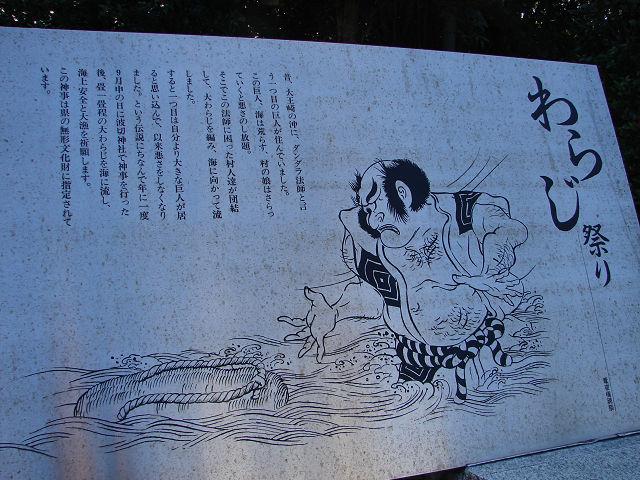 わらじ祭り
昔、大王崎の沖に、ダンダラ法師と言
う一つ目の巨人が住んでいました。
この巨人、海は荒らす、村の娘はさらっ
ていくと悪さのし放題。
そこでこの法師に困った村人達が団結
して、大わらじを編み、海に向かって流
しました。
すると一つ目は自分より大きな巨人が居
ると思い込んで、以来悪さをしなくなり
ました。という伝説にちなんで年に一度
9月申の日に波切神社で神事を行った
後、畳一畳程の大わらじを海に流し、
海上安全と大漁を祈願します。
この神事は県の無形文化財に指定されて
います。